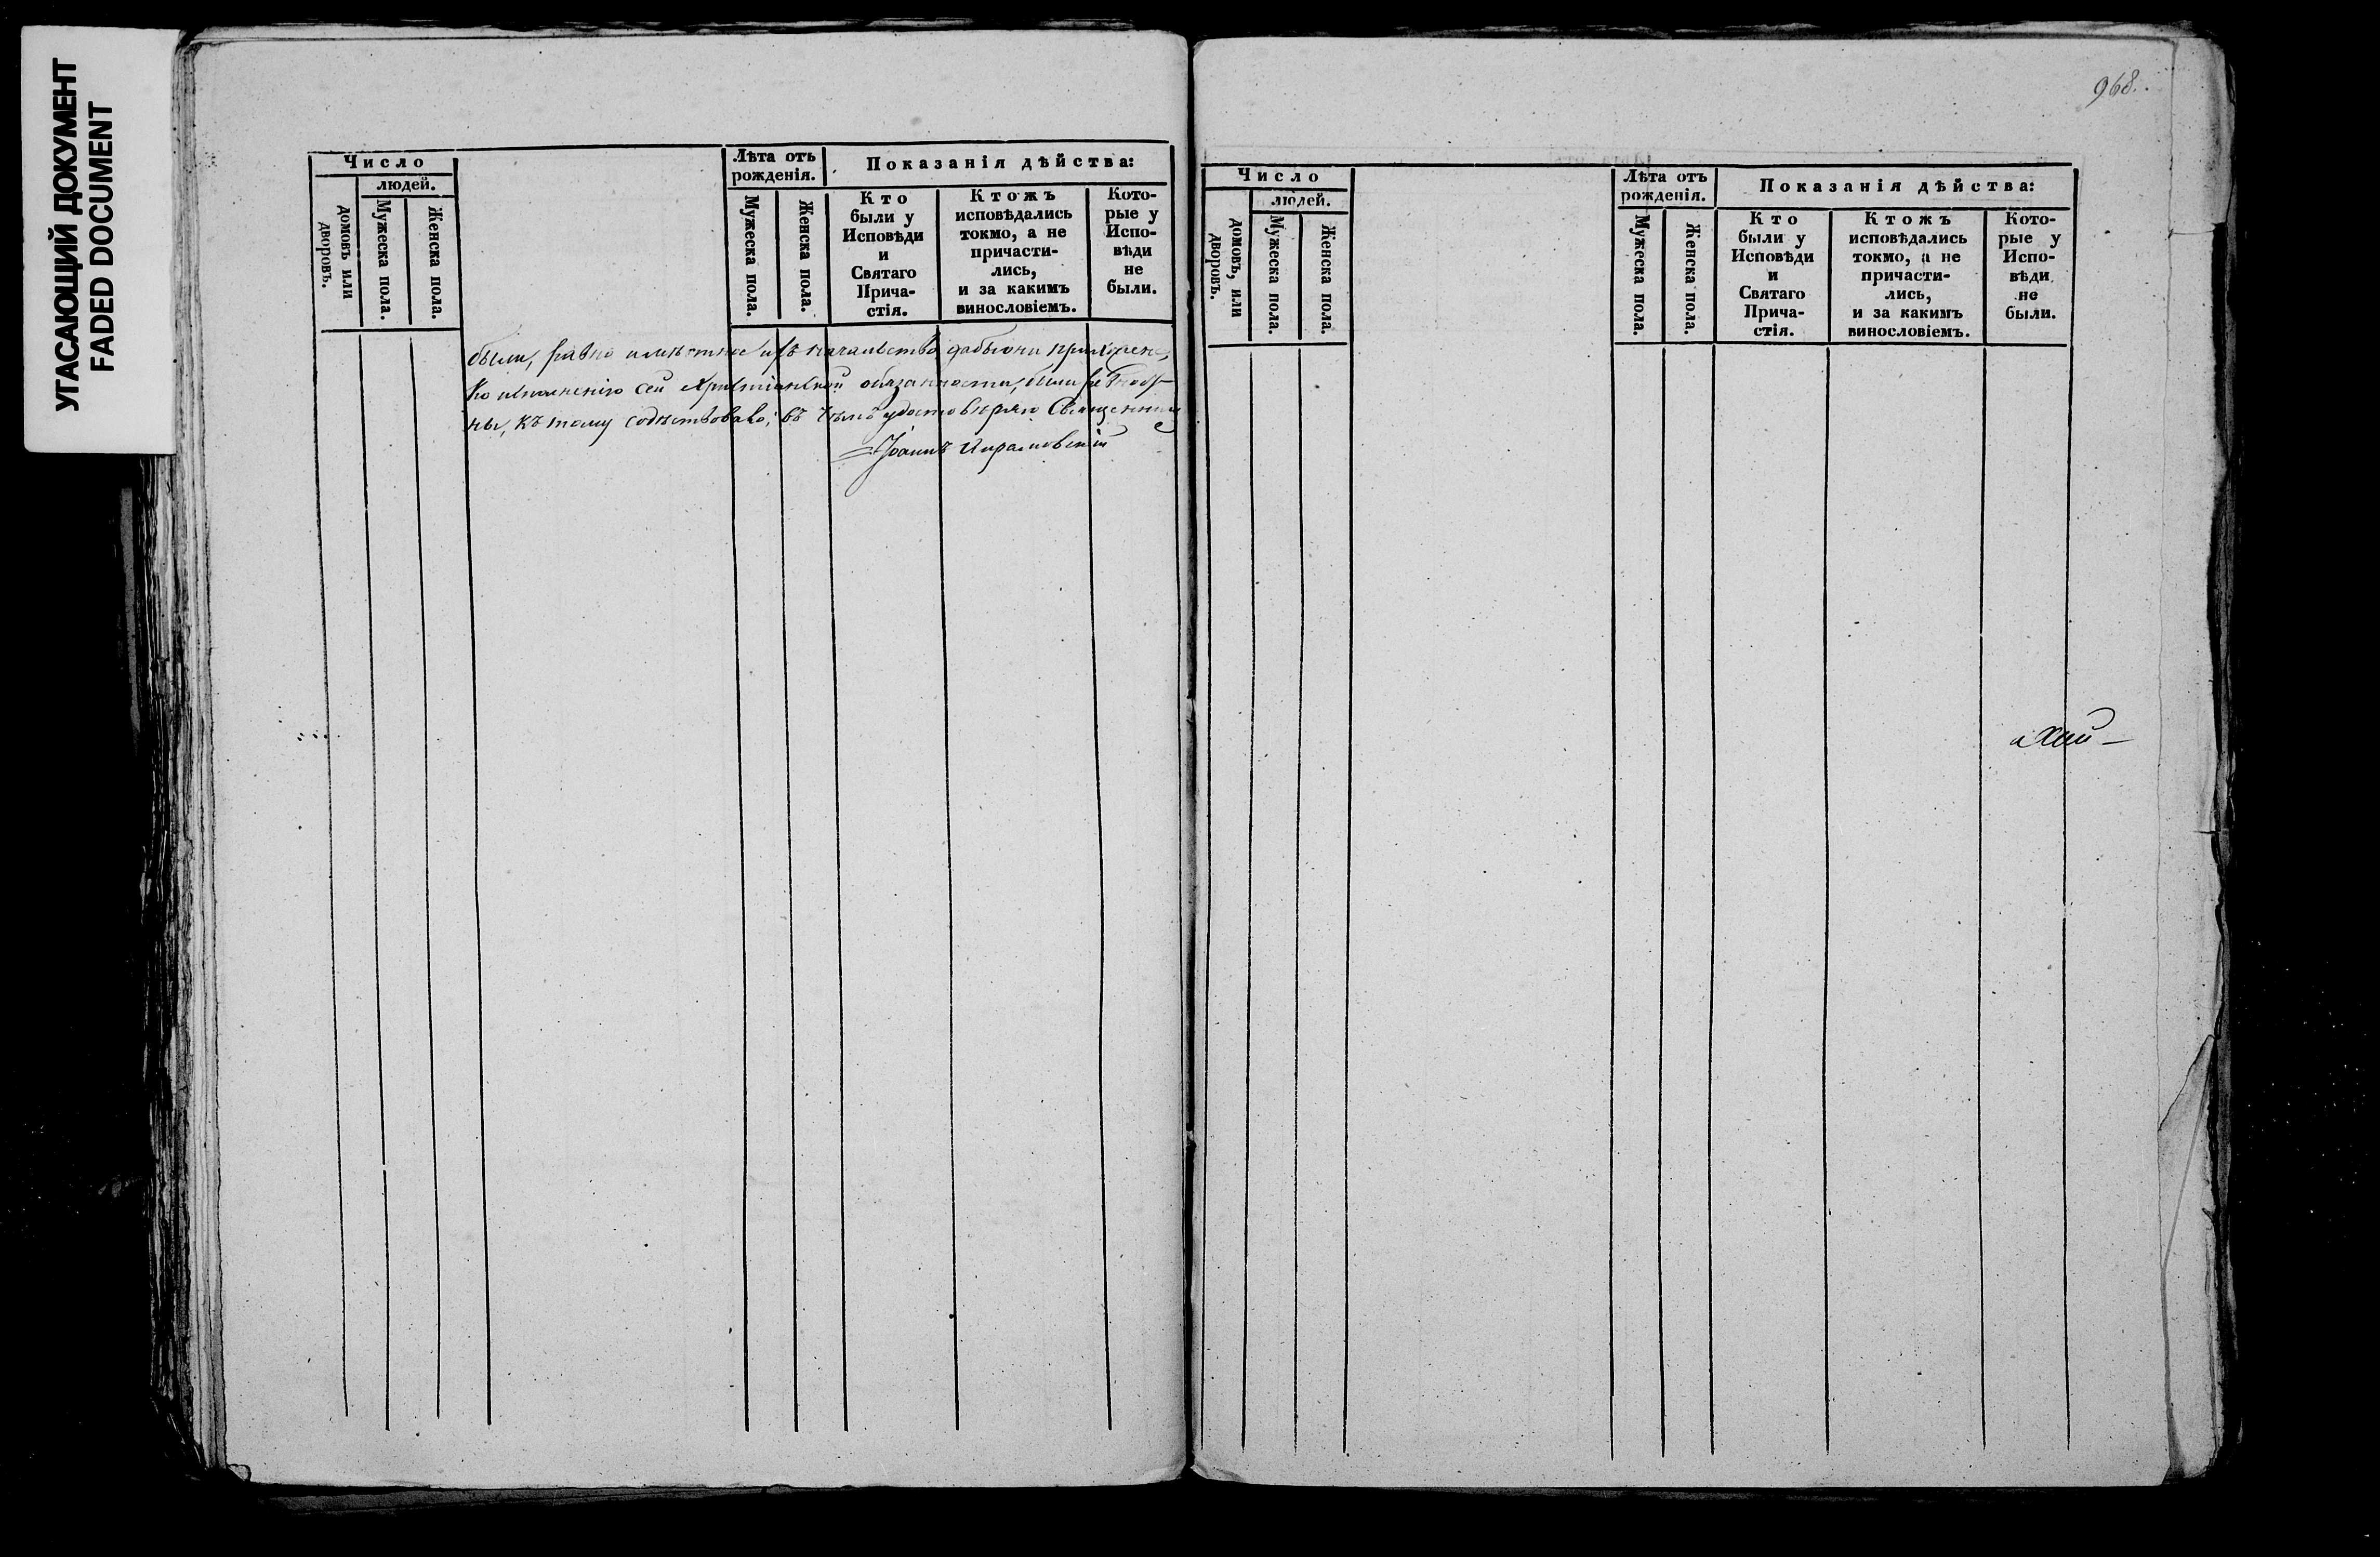 УГАСАЮЩИЙ ДОКУМЕНТ
FADED DOCUMENT
Число
людей.
домовъ или дворовъ.
Мужеска пола.
Женска пола.
Лѣта отъ
рожденія.
Мужеска пола.
Женска пола.
Показанія дѣйства:
Кто
были у
Исповѣди
и
Святаго
Прича-
стія.
Ктожъ
исповѣдались
токмо, а не
причасти-
лись,
и за какимъ
винословіемъ.
Кото-
рые у
Испо-
вѣди
не
были.
были, равно и ихъ начальство дабы они
Ко исполненію сей Христіанской обязанности, были
ны, къ тому содѣствовало; въ чемъ удостовѣряю Священникъ
Іоаннъ
968.
Число
людей.
домовъ, или дворовъ.
Мужеска пола.
Женска пола.
Лѣта отъ
рожденія.
Мужеска пола.
Женска пола.
Показанія дѣйства:
Кто
были у
Исповѣди
и
Святаго
Прича-
стія.
Ктожъ
исповѣдались
токмо, а не
причасти-
лись,
и за какимъ
винословіемъ.
Кото-
рые у
Испо-
вѣди
не
были.